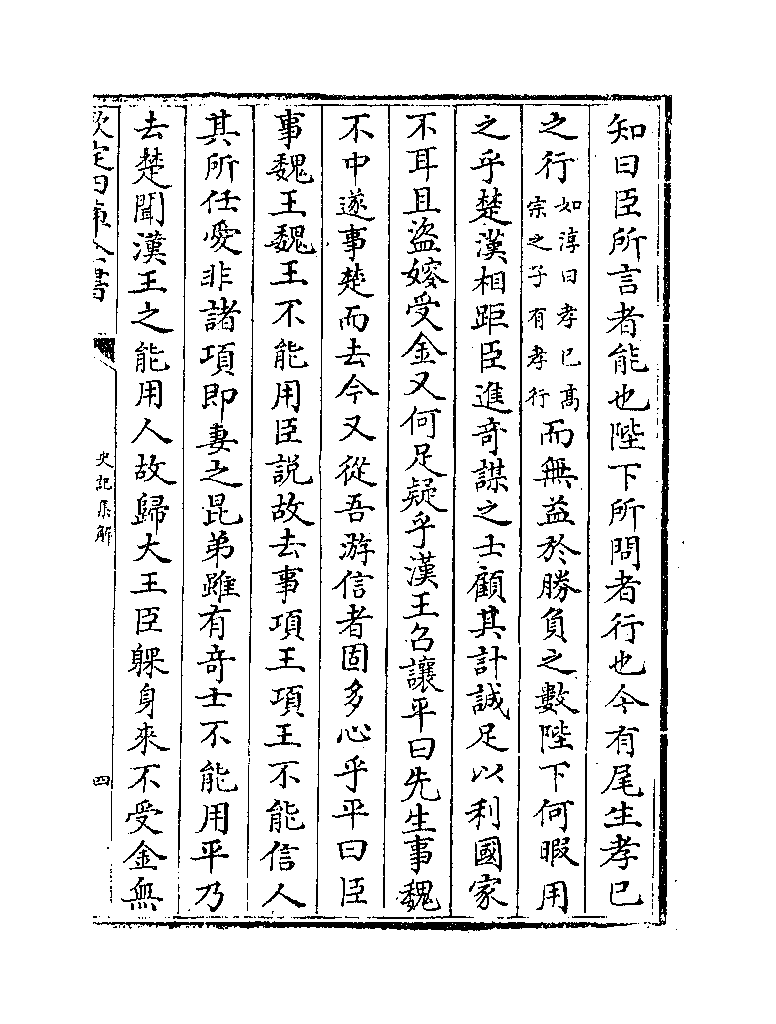 知曰臣所言者能也陛下所問者行也今有尾生孝已
之行如淳曰孝已髙宗之子有孝行而無益於勝負之數陛下何暇用
之乎楚漢相距臣進奇謀之士顧其計誠足以利國家
不耳且盜嫂受金又何足疑乎漢王召讓平曰先生事魏
不中遂事楚而去今又從吾游信者固多心乎平曰臣
事魏王魏王不能用臣説故去事項王項王不能信人
其所任愛非諸項即妻之昆弟雖有竒士不能用平乃
去楚聞漢王之能用人故歸大王臣躶身來不受金無
欽定四庫全書
史記集解
四